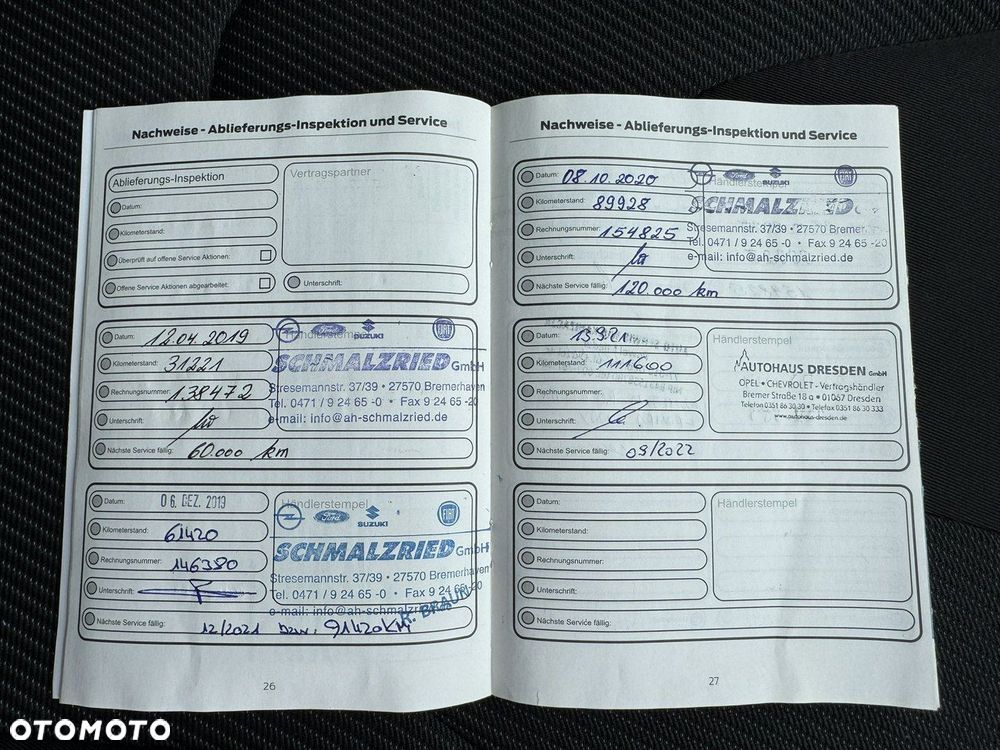 Nachweise - Ablieferungs-Inspektion und Service
Ablieferungs-Inspektion
Vertragspartner
Datum:
Kilometerstand:
Überprüft auf offene Service Aktionen:
Offene Service Aktionen abgearbeitet:
Unterschrift:
Datum: 12.04.2019
Kilometerstand: 31221
Rechnungsnummer: 138472
Unterschrift:
Nächste Service fällig: 60.000 km
Händlerstempel
Ford
SUZUKI
FIAT
SCHMALZRIED GmbH
Stresemannstr. 37/39 • 27570 Bremerhaven
Tel. 0471 / 9 24 65 -0 • Fax 9 24 65 -20
e-mail: info@ah-schmalzried.de
Datum: 06. DEZ. 2019
Kilometerstand: 61420
Rechnungsnummer: 146380
Unterschrift:
Nächste Service fällig: 12/2021 bzw. 91420 KM
Händlerstempel
Ford
SUZUKI
FIAT
SCHMALZRIED GmbH
Stresemannstr. 37/39 • 27570 Bremerhaven
Tel. 0471 / 9 24 65 -0 • Fax 9 24 65 -20
e-mail: info@ah-schmalzried
BRAUN
26
Nachweise - Ablieferungs-Inspektion und Service
Datum: 08.10.2020
Kilometerstand: 89928
Rechnungsnummer: 154825
Unterschrift:
Nächste Service fällig: 120.000 km
Händlerstempel
Ford
SUZUKI
FIAT
SCHMALZRIED
Stresemannstr. 37/39 • 27570 Bremer
Tel. 0471 / 9 24 65 -0 • Fax 9 24 65 -20
e-mail: info@ah-schmalzried.de
Datum: 13.9.21
Kilometerstand: 111600
Rechnungsnummer:
Unterschrift:
Nächste Service fällig: 09/2022
Händlerstempel
AUTOHAUS DRESDEN GmbH
OPEL • CHEVROLET - Vertragshändler
Bremer Straße 18 a • 01067 Dresden
Telefon 0351 86 30 30 • Telefax 0351 86 30 333
www.autohaus-dresden.de
Datum:
Kilometerstand:
Rechnungsnummer:
Unterschrift:
Nächste Service fällig:
Händlerstempel
27
OTOMOTO